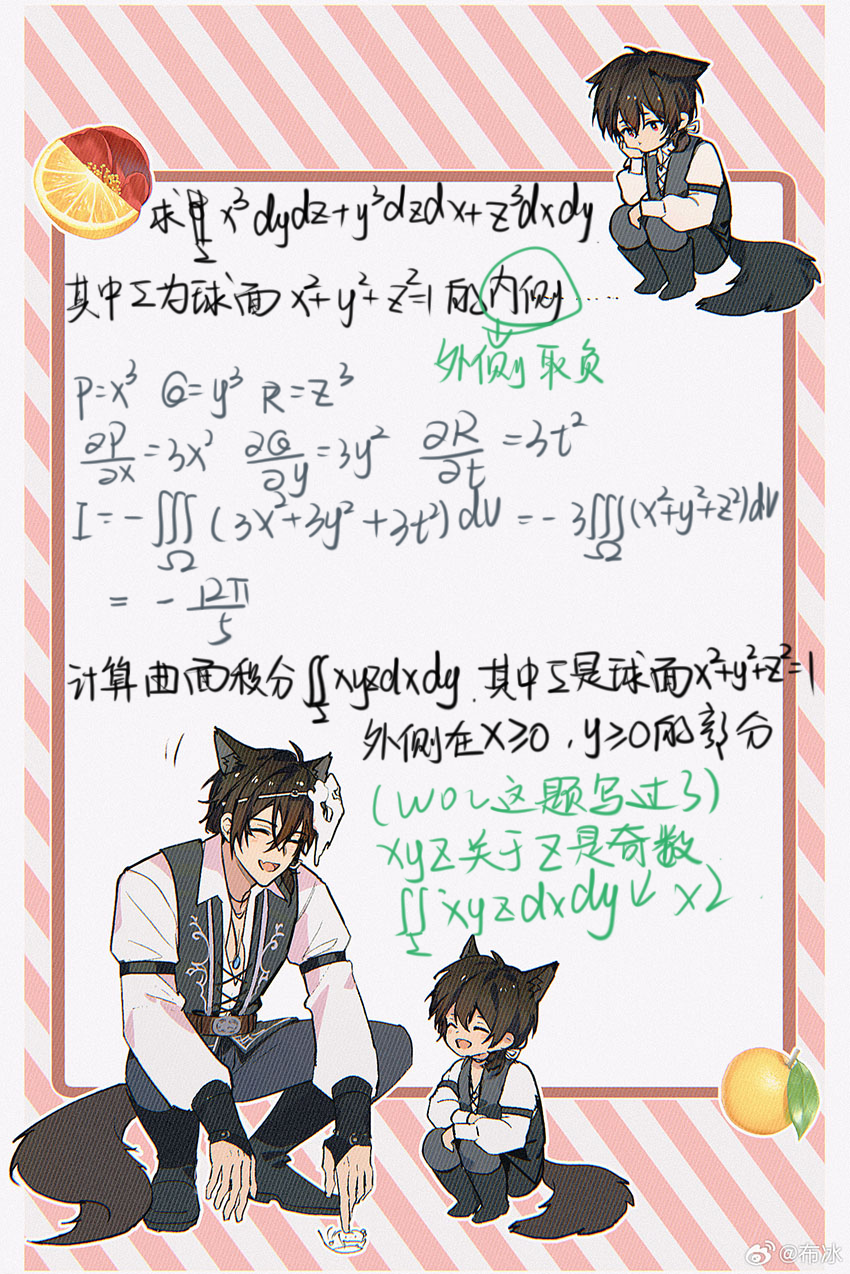 求∯_Σ x³dydz+y³dzdx+z³dxdy
其中Σ为球面x²+y²+z²=1的内侧……
外侧取负
P=x³ Q=y³ R=z³
∂P/∂x=3x² ∂Q/∂y=3y² ∂R/∂t=3t²
I=-∭_Ω(3x²+3y²+3t²)dV=-3∭_Ω(x²+y²+z²)dV
=-12π/5
计算曲面积分∬_Σ xyzdxdy.其中Σ是球面x²+y²+z²=1
外侧在x≥0,y≥0的部分
(WOC这题写过了)
xyz关于z是奇数
∬_Σ xyzdxdy ×2
@布冰